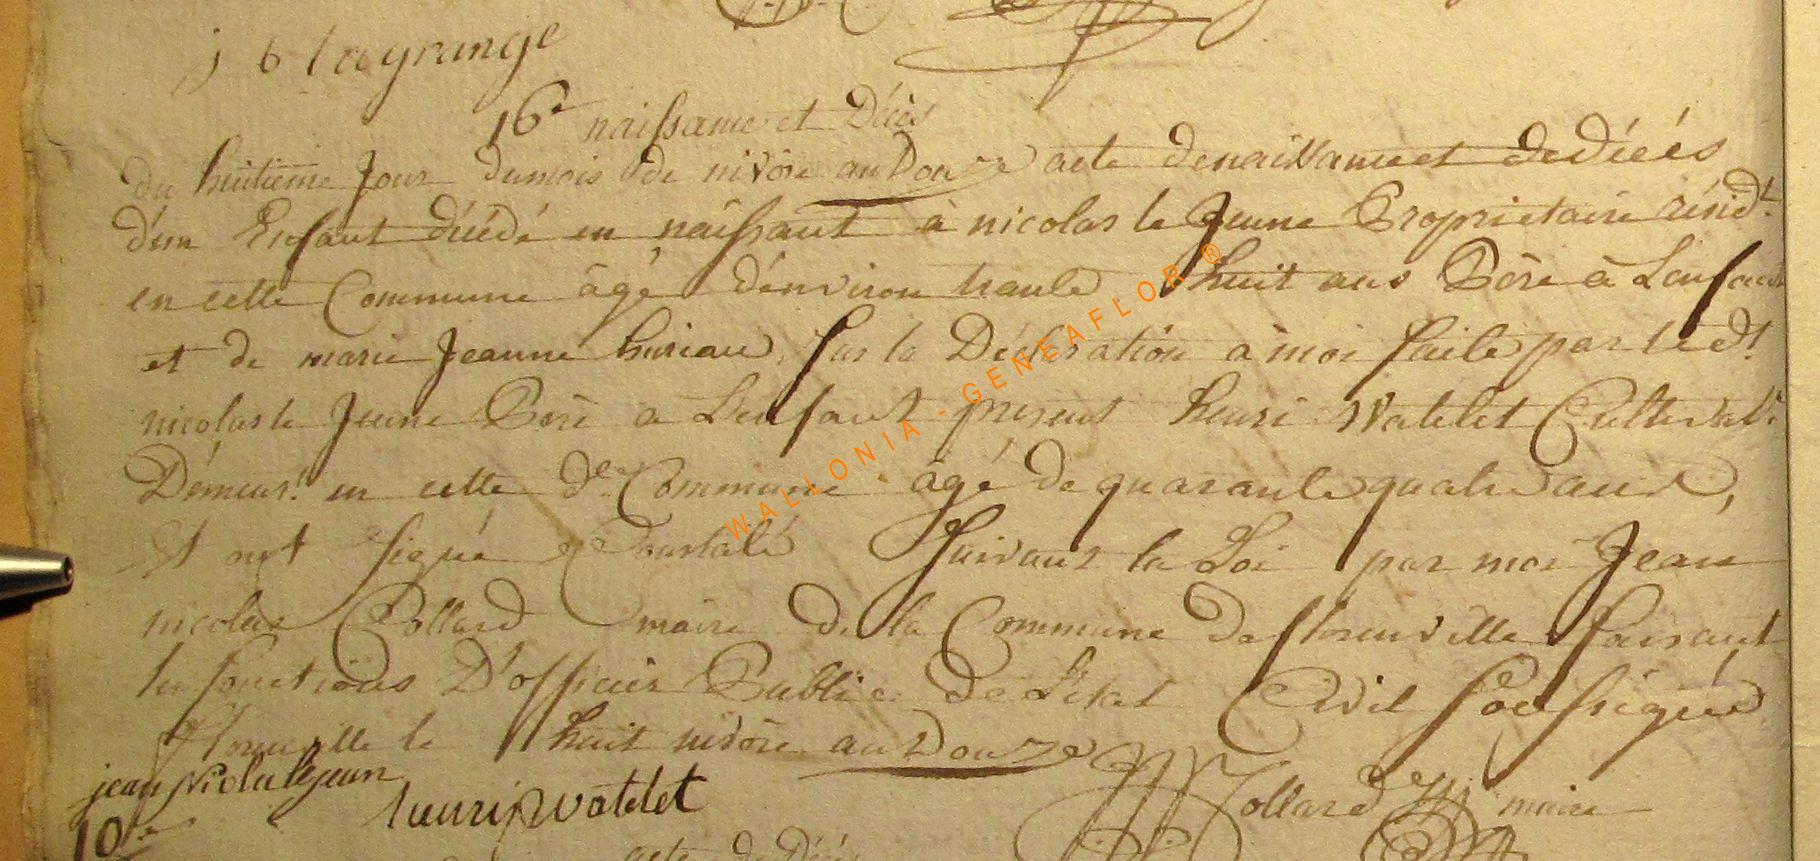 j b lagrange
16e naissance et Décès
du huitieme Jour du mois de nivôse an Douze acte de naissance et de Décés
d'un Enfant décédé en naissant à nicolas le Jeune Proprietaire résidt.
en cette Commune âgé d'environ trante huit ans Père à Lenfant
et de marie Jeanne huriau, sur la Déclaration à moi faite par le dt.
nicolas le Jeune Père a Lenfant present henri Watelet Cultivatr.
Demeurt. en cette de. Commune âgé de quarante quatre ans,
Et ont signé Constaté Suivant la Loi par moi Jean
nicolas Collard maire de la Commune de florenville faisant
les fonctions D'officier Public De L'Etat Civil Soussigné
florenville le huit nivôse an Douze
jean Nicola lejeun
henri watelet
Collard maire
10e
acte de Décè
WALLONIA - GENEAFLOR ®